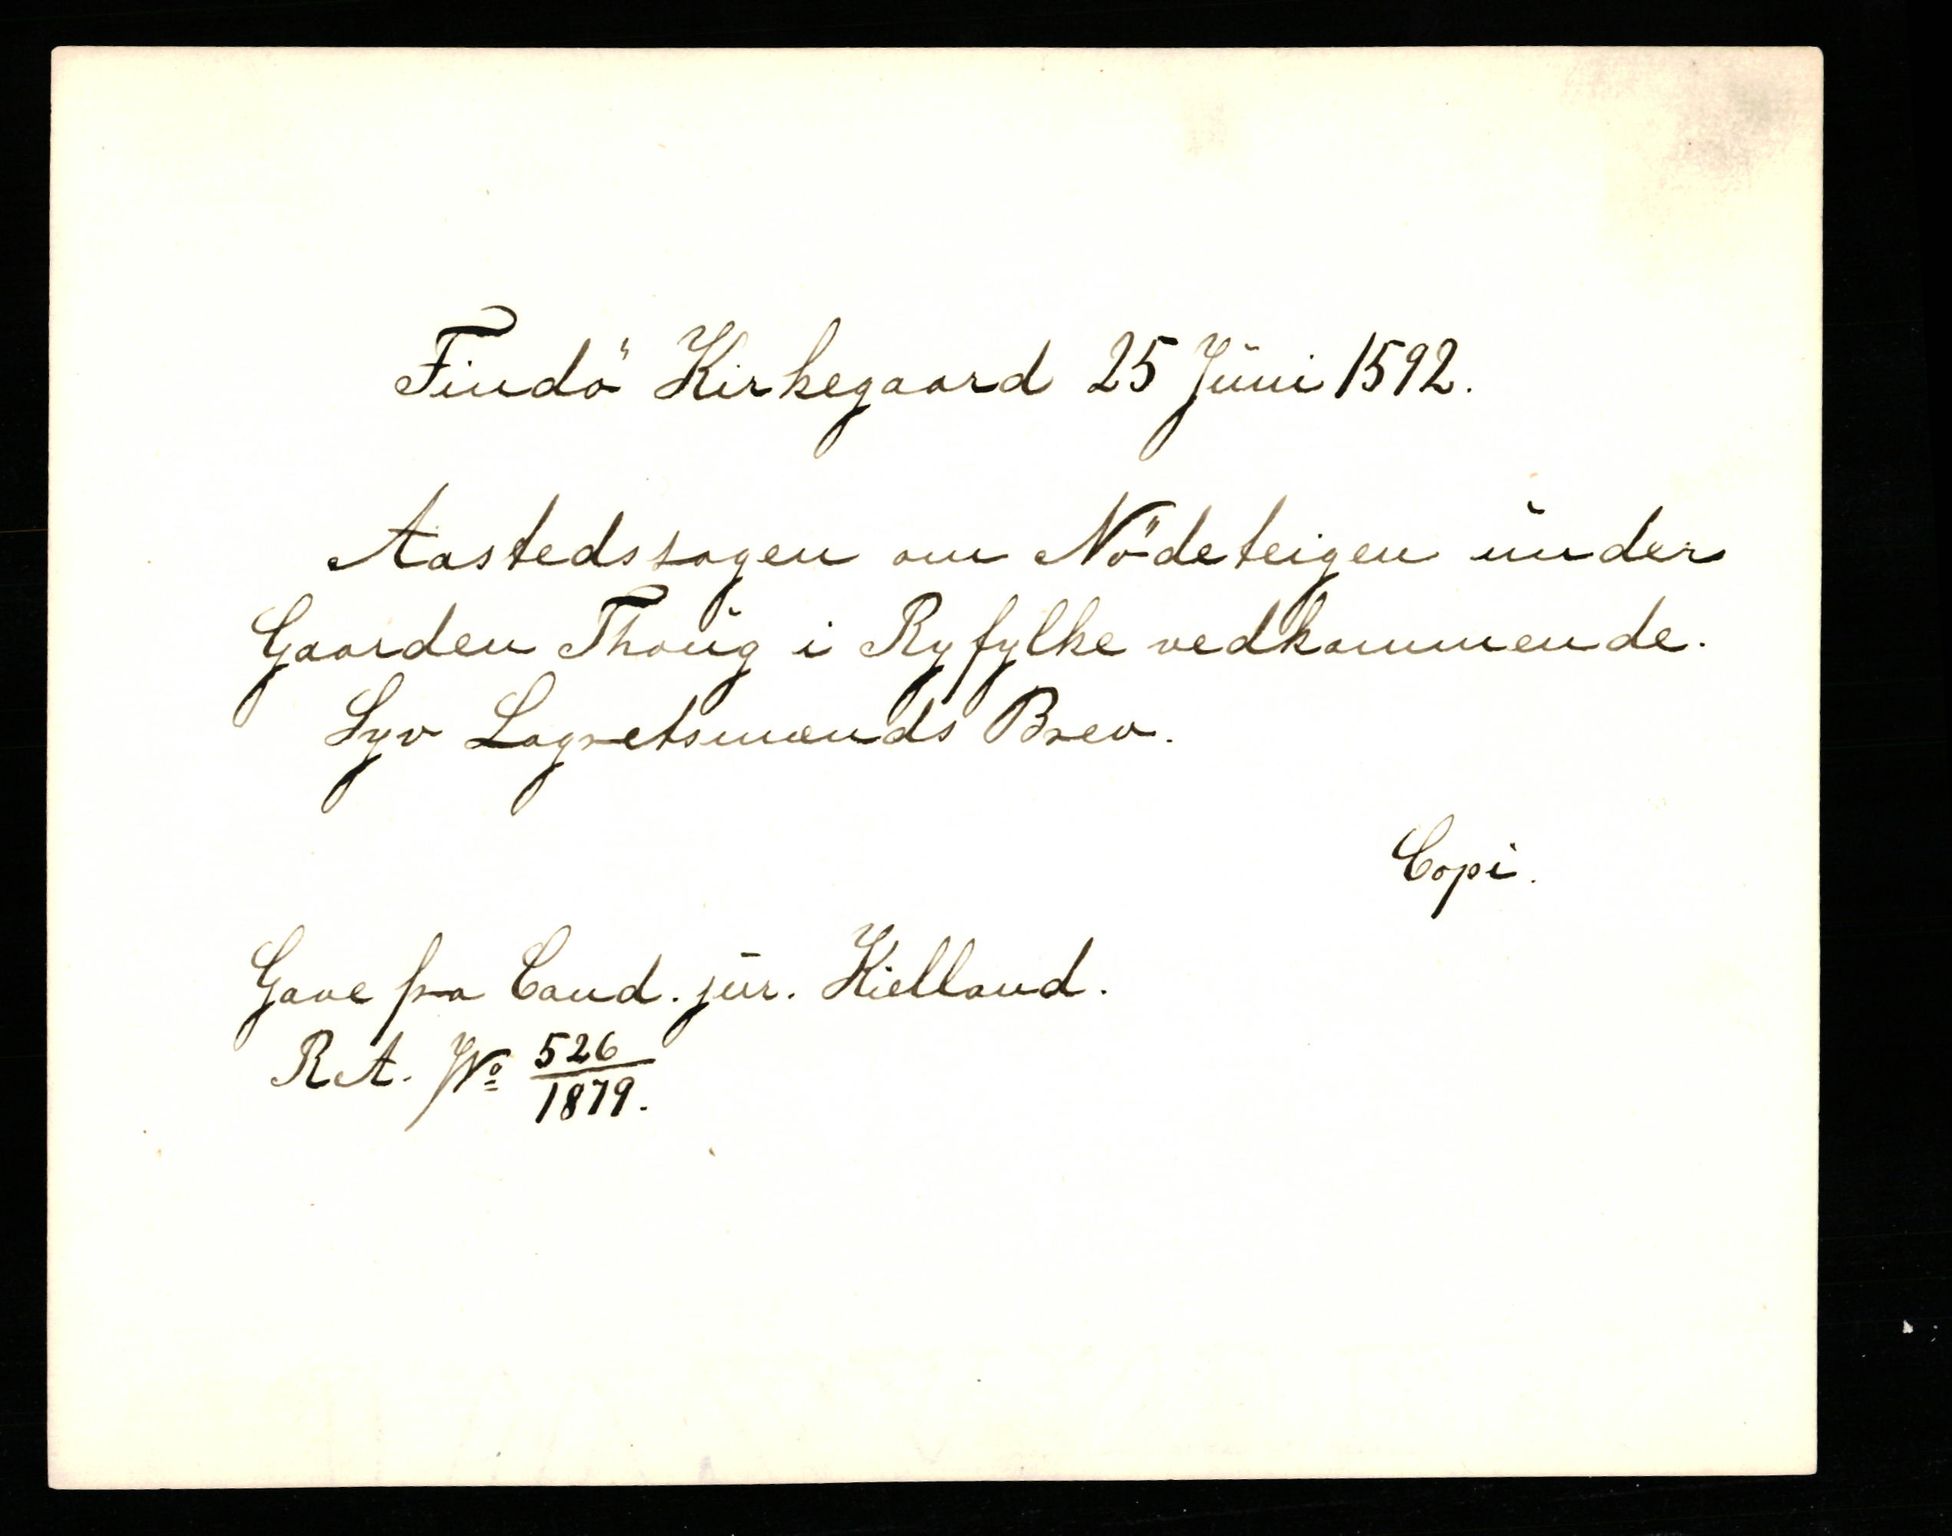 Findö Kirkegaard 25 Juni 1592.
Aastedssagen om Nödeteigen under
Gaarden Thoug i Ryfylke vedkommende.
Syv Lagretsmænds Brev.
Copi.
Gave fra Cand. jur. Kielland.
R. A. No 526/1879.